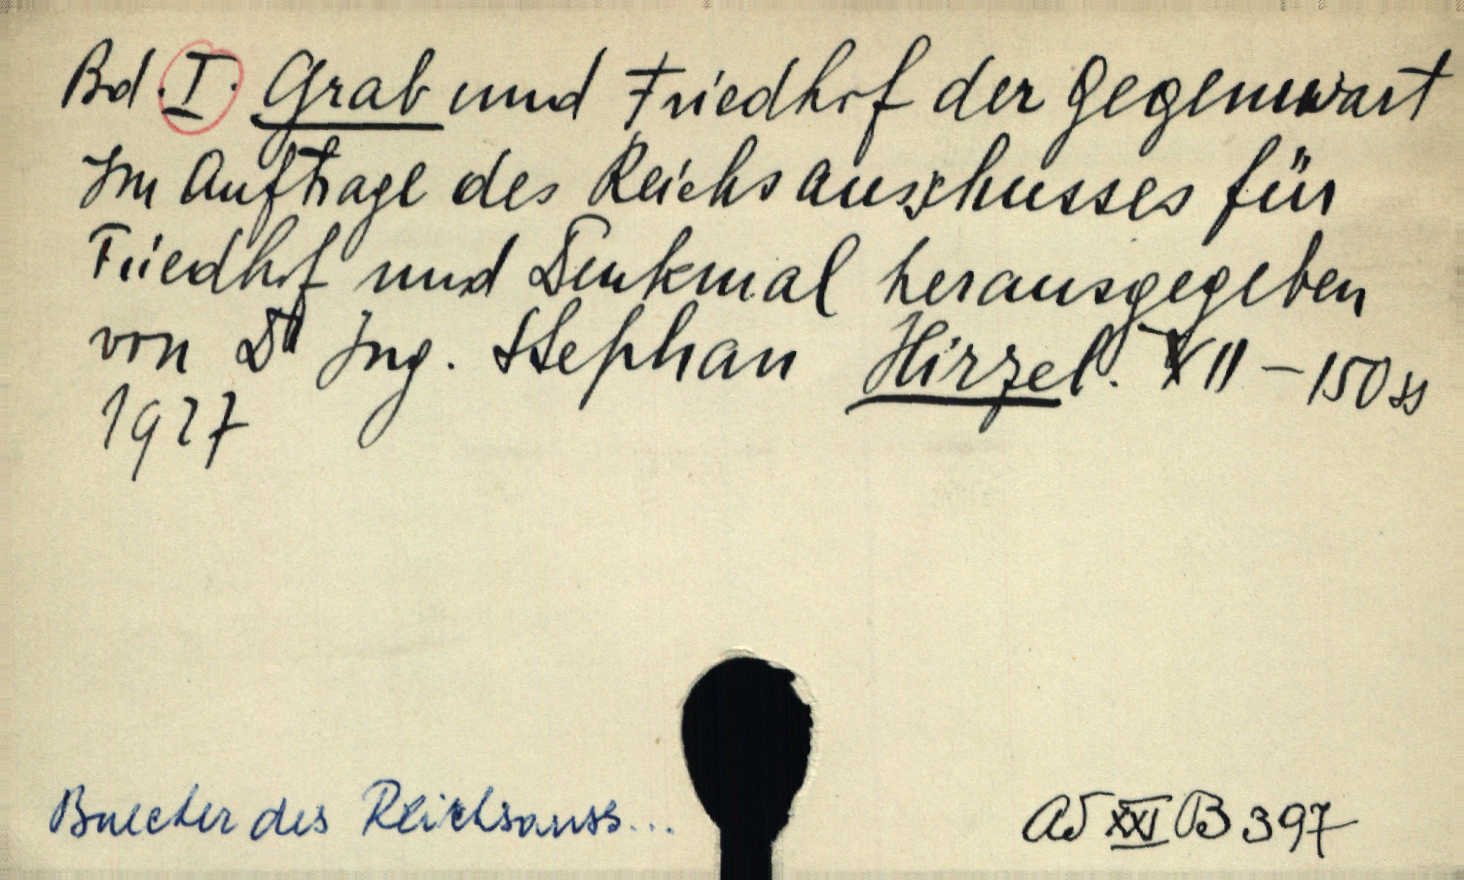 Bd. I. Grab und Friedhof der Gegenwart
Im Auftrage des Reichsausschusses für
Friedhof und Denkmal herausgegeben
von Dr Ing. Stephan Hirzel. XII – 150 ss
1927
Buecher des Reichsauss...
AD XXI B 397